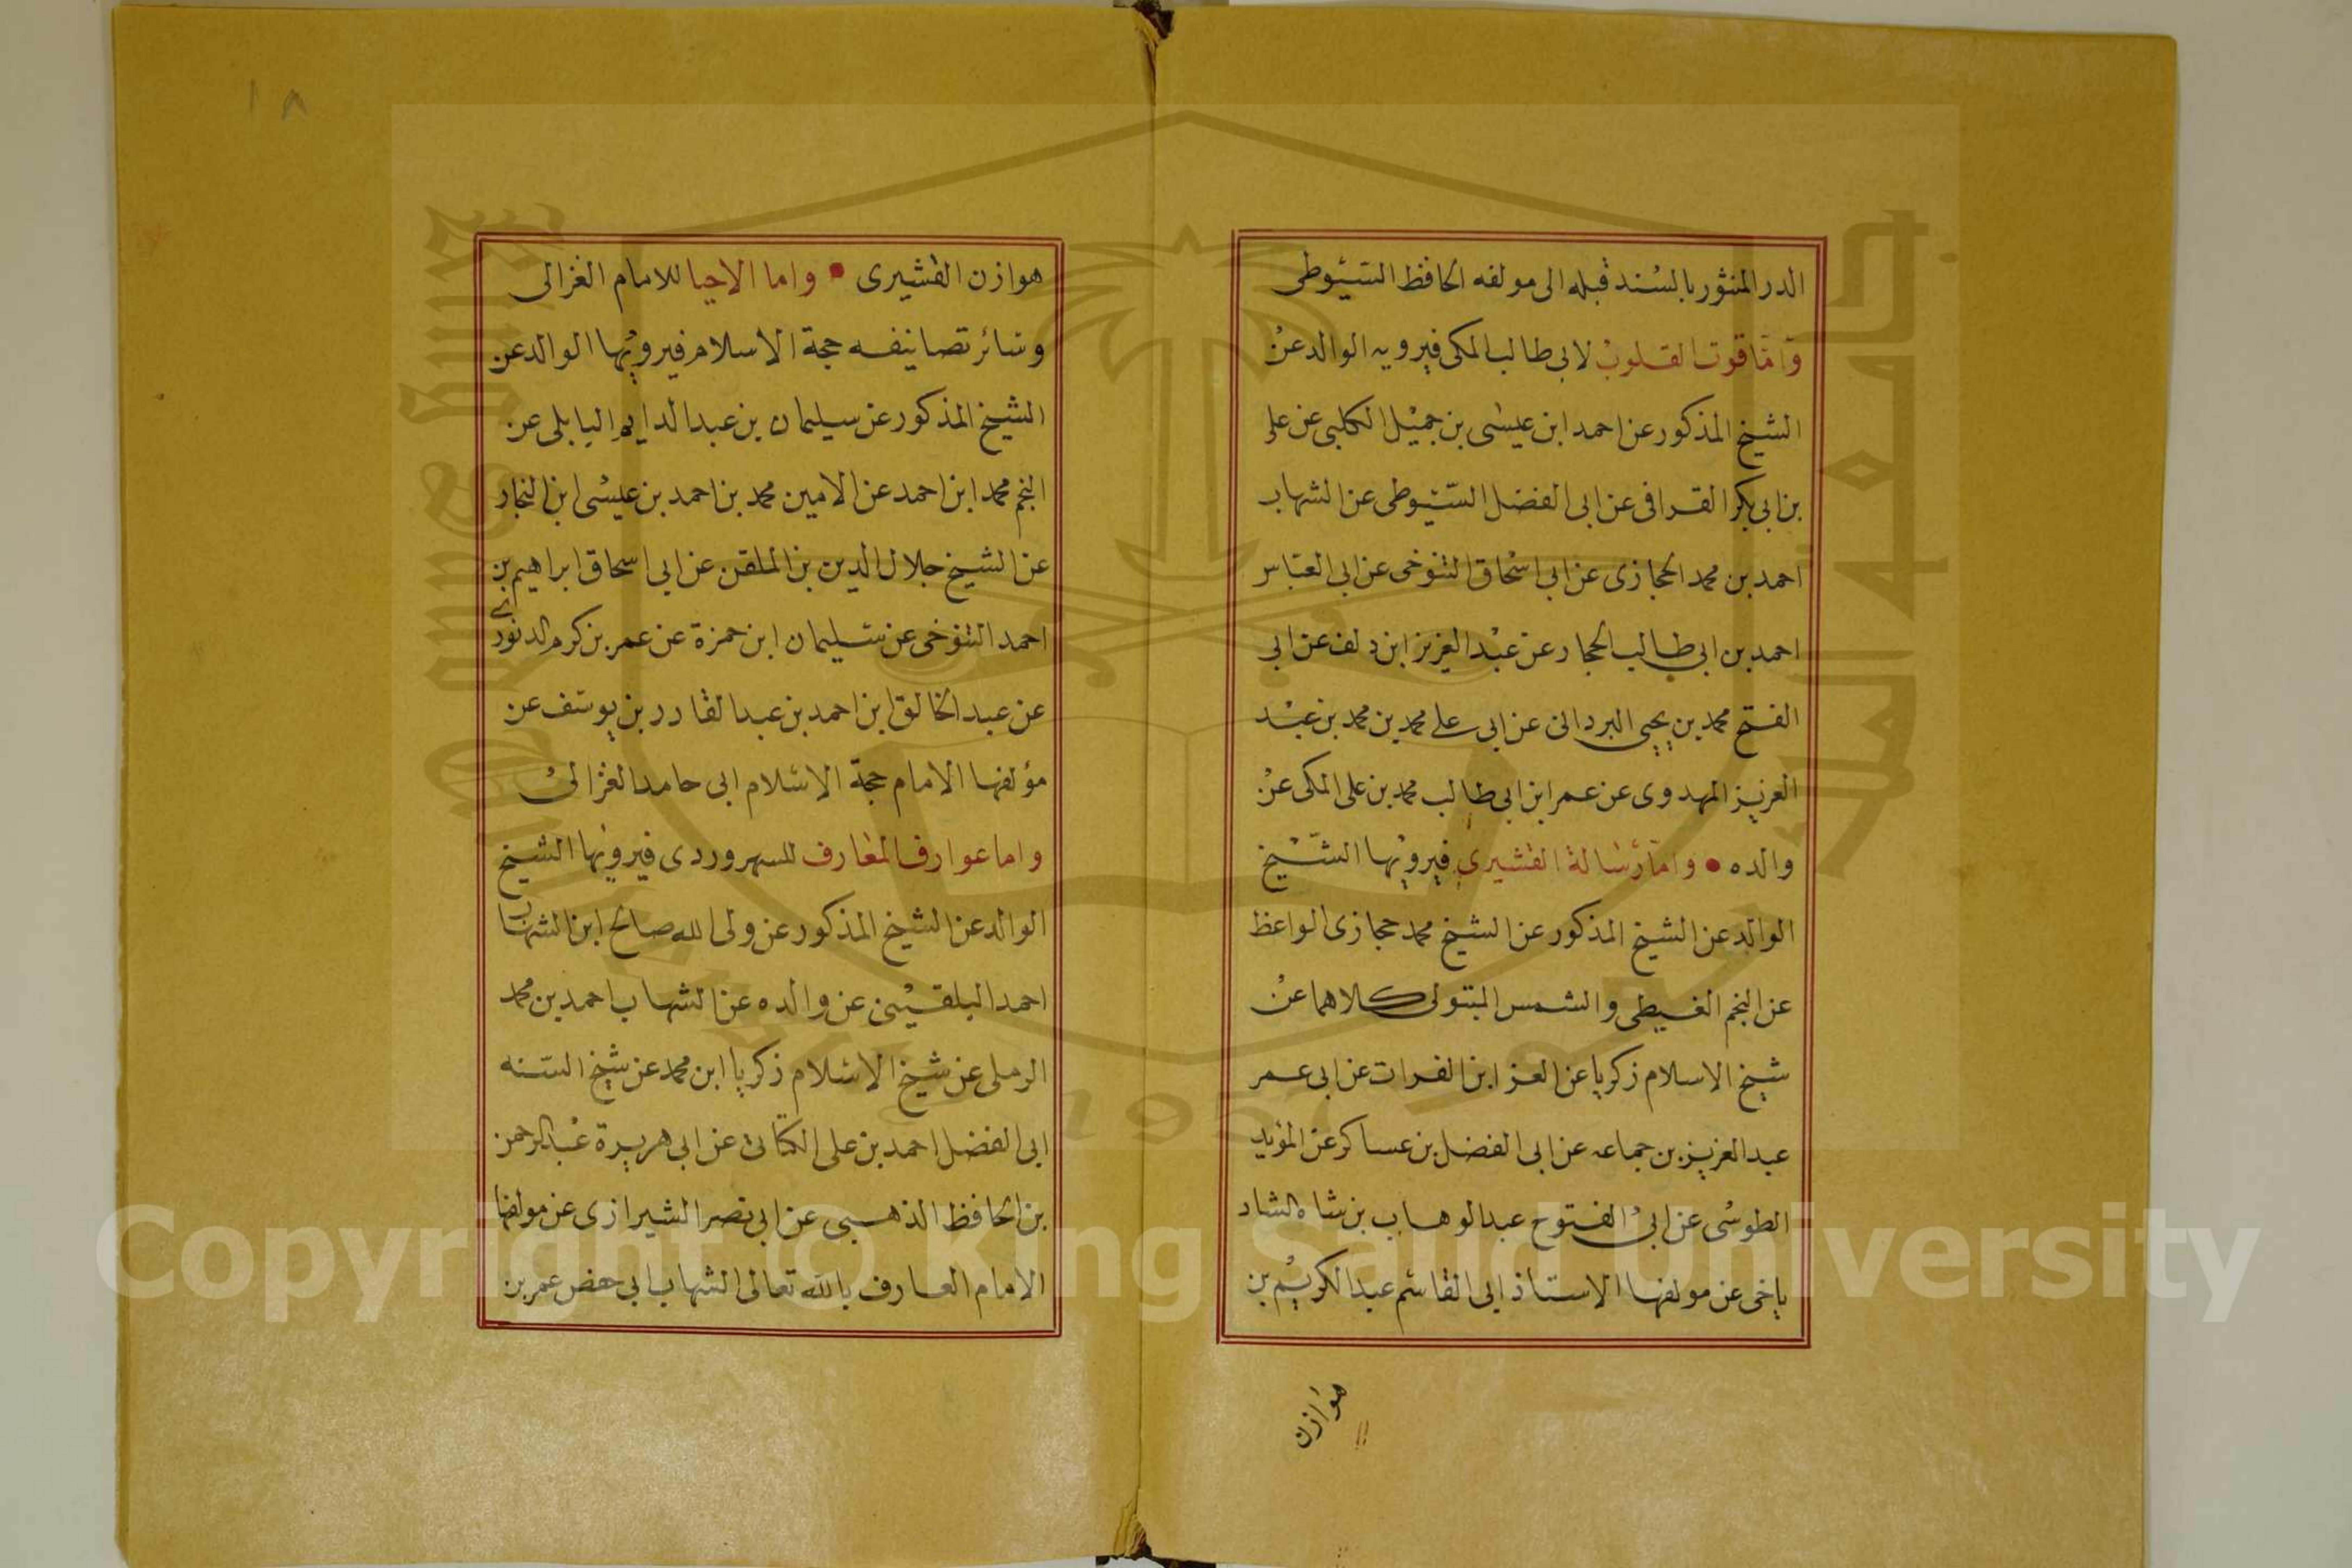 الدر المنثور بالسند قبله الى مولفه الحافظ السيوطى
وَاَمّا قوت القلوب لابى طالب المكى فيرويه الوالد عن
الشيخ المذكور عن احمد ابن عيسى بن جميل الكلبى عن على
بن ابى بكر القرافى عن ابى الفضل السيوطى عن الشهاب
احمد بن محمد الحجازى عن ابى اسحاق التنوخى عن ابى العباس
احمد بن ابى طالب الحجار عن عبد العزيز ابن دلف عن ابى
الفتح محمد بن يحيى البردانى عن ابى على محمد بن محمد بن عبد
العزيز المهدوى عن عمر ابن ابى طالب محمد بن على المكى عن
والده • وامّا رسالة القشيرى فيرويها الشيخ
الوالد عن الشيخ المذكور عن الشيخ محمد حجازى الواعظ
عن النجم الغيطى والشمس المبتولى كلاهما عن
شيخ الاسلام زكريا عن العز ابن الفرات عن ابى عمر
عبد العزيز بن جماعه عن ابى الفضل بن عساكر عن المؤيد
الطوسى عن ابى الفتوح عبد الوهاب بن شاه الشاد
ياخى عن مولفها الاستاذ ابى القاسم عبد الكريم بن
هوازن
هوازن القشيرى • واما الاحيا للامام الغزالى
وسائر تصانيفه حجة الاسلام فيرويها الوالد عن
الشيخ المذكور عن سيليمان بن عبد الدايم البابلى عن
النجم محمد ابن احمد عن الامين محمد بن احمد بن عيسى ابن النجار
عن الشيخ جلال الدين بن الملقن عن ابى اسحاق ابراهيم بن
احمد التنوخى عن سليمان ابن حمزة عن عمر بن كرم الدنورى
عن عبد الخالق ابن احمد بن عبد القادر بن يوسف عن
مؤلفها الامام حجة الاسلام ابى حامد الغزالى
واما عوارف المعارف للسهروردى فيرويها الشيخ
الوالد عن الشيخ المذكور عن ولى الله صالح ابن الشهاب
احمد البلقينى عن والده عن الشهاب احمد بن محمد
الرملى عن شيخ الاسلام زكريا ابن محمد عن شيخ السنه
ابى الفضل احمد بن على الكنانى عن ابى هريرة عبد الرحمن
بن الحافظ الذهبى عن ابى نصر الشيرازى عن مولفها
الامام العارف بالله تعالى الشهاب ابى حفص عمر بن
١٨
Copyright © King Saud University